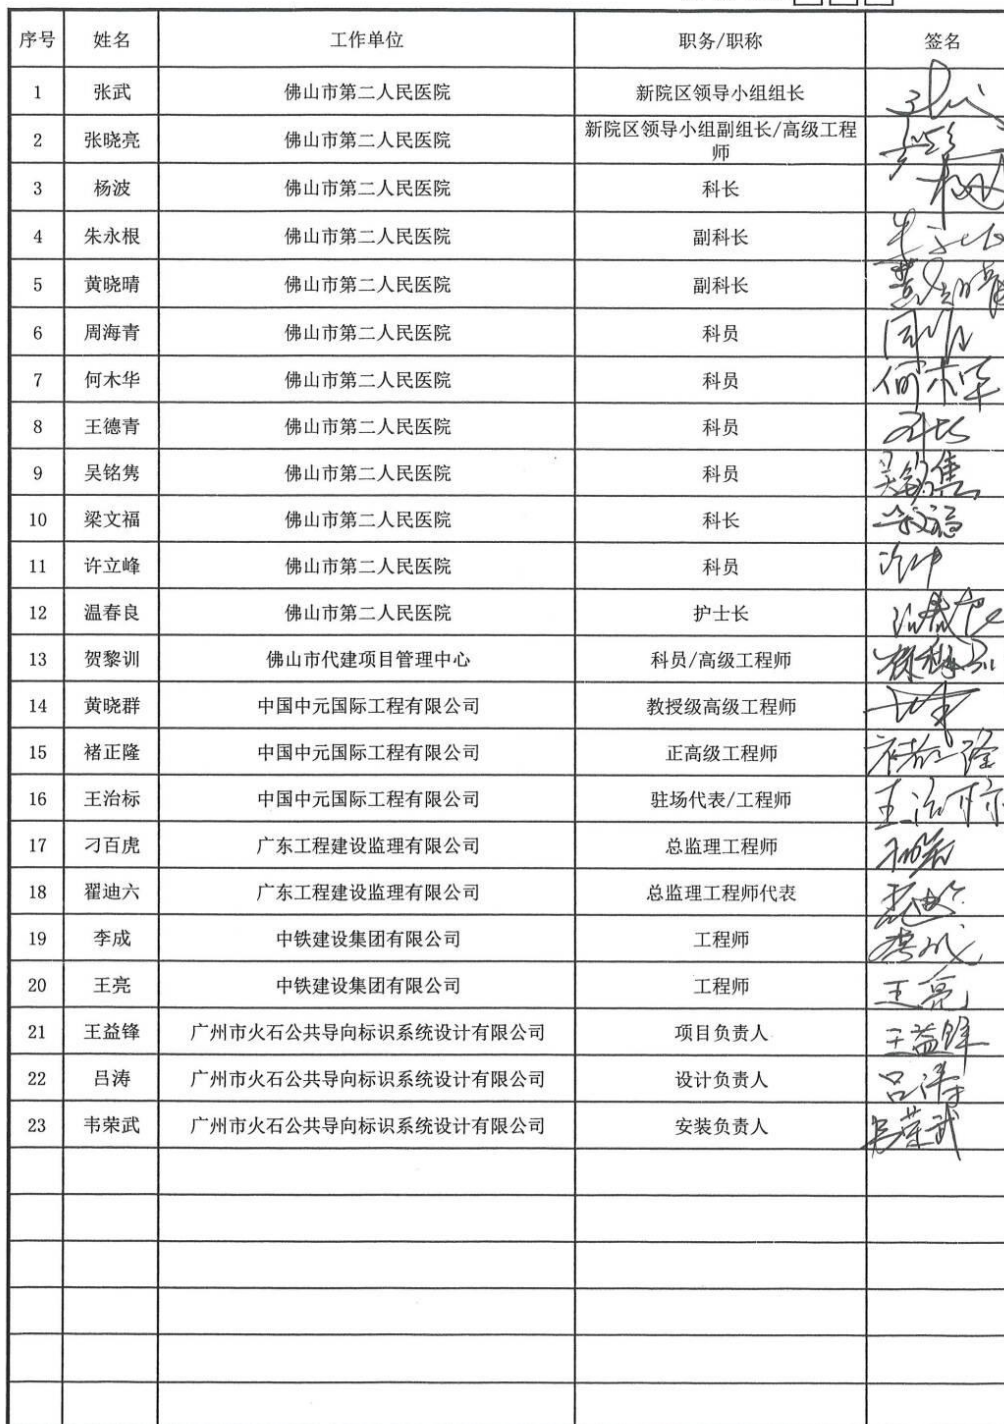 序号 姓名 工作单位 职务/职称 签名
1 张武 佛山市第二人民医院 新院区领导小组组长
2 张晓亮 佛山市第二人民医院 新院区领导小组副组长/高级工程
师
3 杨波 佛山市第二人民医院 科长
4 朱永根 佛山市第二人民医院 副科长
5 黄晓晴 佛山市第二人民医院 副科长
6 周海青 佛山市第二人民医院 科员
7 何木华 佛山市第二人民医院 科员 何木华
8 王德青 佛山市第二人民医院 科员
9 吴铭隽 佛山市第二人民医院 科员 吴铭隽
10 梁文福 佛山市第二人民医院 科长
11 许立峰 佛山市第二人民医院 科员
12 温春良 佛山市第二人民医院 护士长
13 贺黎训 佛山市代建项目管理中心 科员/高级工程师
14 黄晓群 中国中元国际工程有限公司 教授级高级工程师
15 褚正隆 中国中元国际工程有限公司 正高级工程师
16 王治标 中国中元国际工程有限公司 驻场代表/工程师 王治标
17 刁百虎 广东工程建设监理有限公司 总监理工程师
18 翟迪六 广东工程建设监理有限公司 总监理工程师代表
19 李成 中铁建设集团有限公司 工程师 李成
20 王亮 中铁建设集团有限公司 工程师 王亮
21 王益锋 广州市火石公共导向标识系统设计有限公司 项目负责人 王益锋
22 吕涛 广州市火石公共导向标识系统设计有限公司 设计负责人 吕涛
23 韦荣武 广州市火石公共导向标识系统设计有限公司 安装负责人 韦荣武